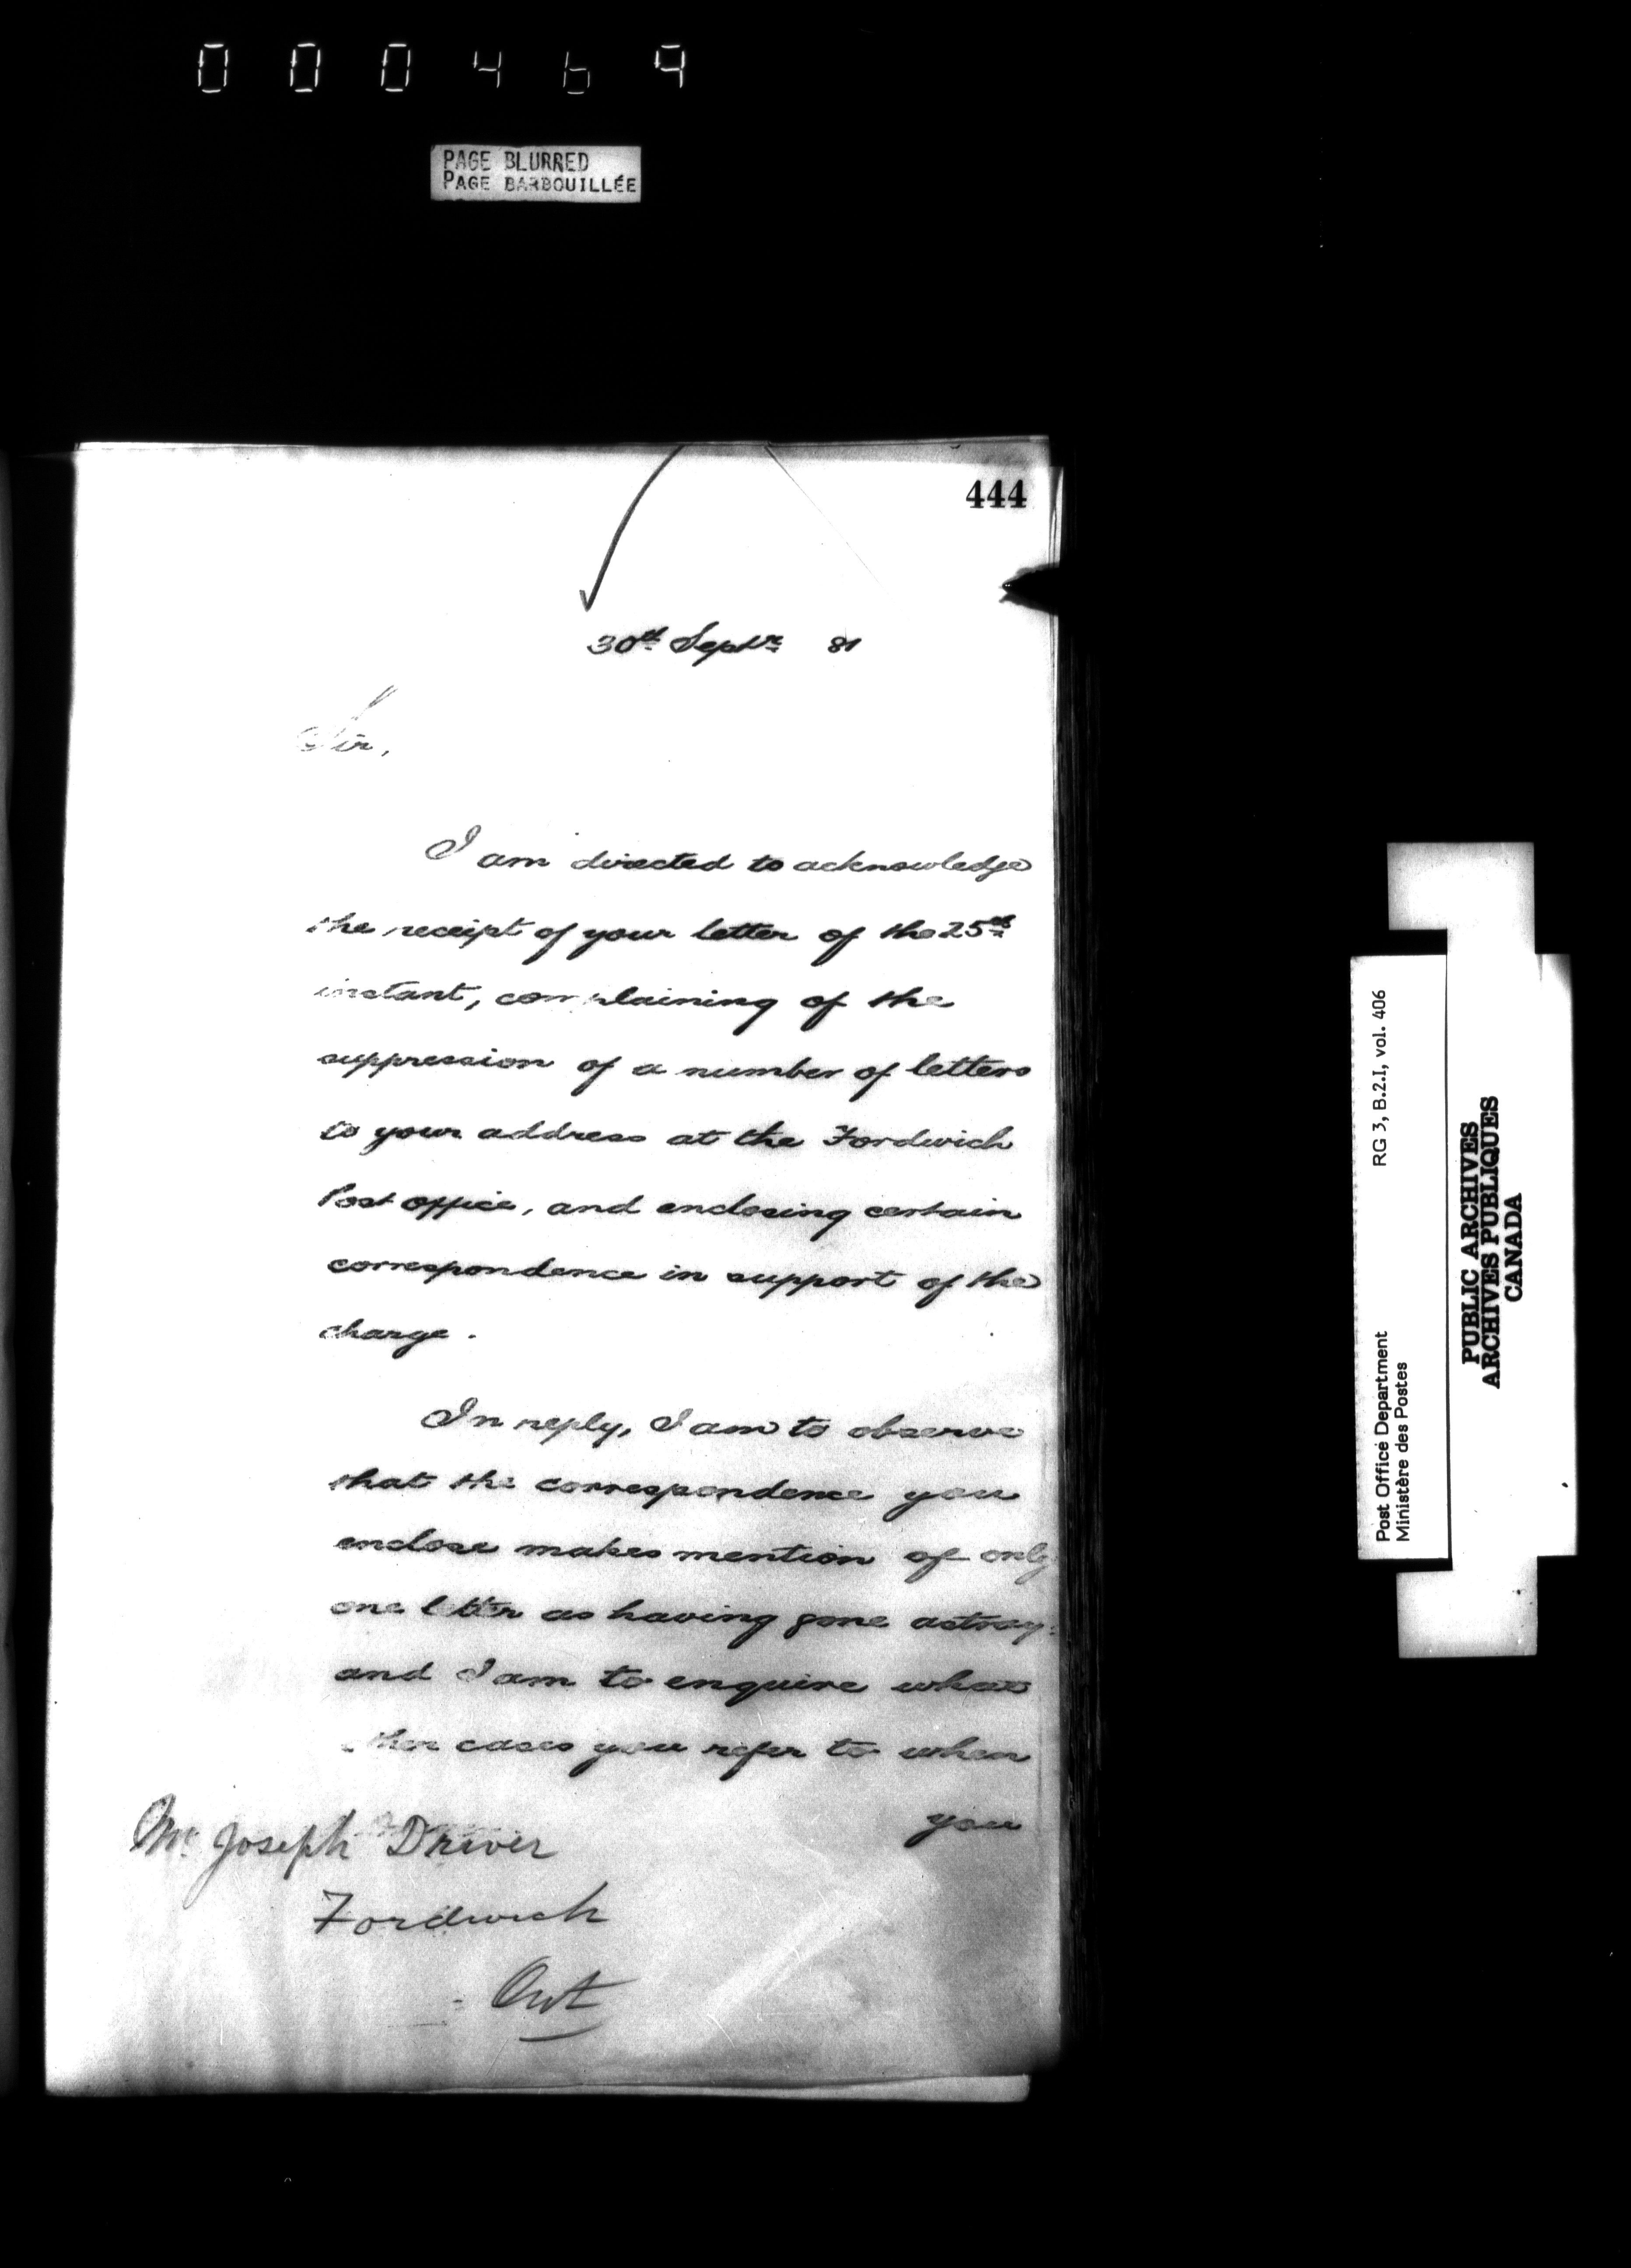 000469
PAGE BLURRED
PAGE BARBOUILLÉE
444
30th Septr 81
Sir,
I am directed to acknowledge
the receipt of your letter of the 25th
instant, complaining of the
suppression of a number of letters
to your address at the Fordwich
Post office, and enclosing certain
correspondence in support of the
charge.
In reply, I am to observe
that the correspondence you
enclose makes mention of only
one letter as having gone astray:
and I am to enquire what
other cases you refer to when
you
Mr Joseph Driver
Fordwich
Ont
Post Office Department
Ministère des Postes
RG 3, B.2.I, vol. 406
PUBLIC ARCHIVES
ARCHIVES PUBLIQUES
CANADA